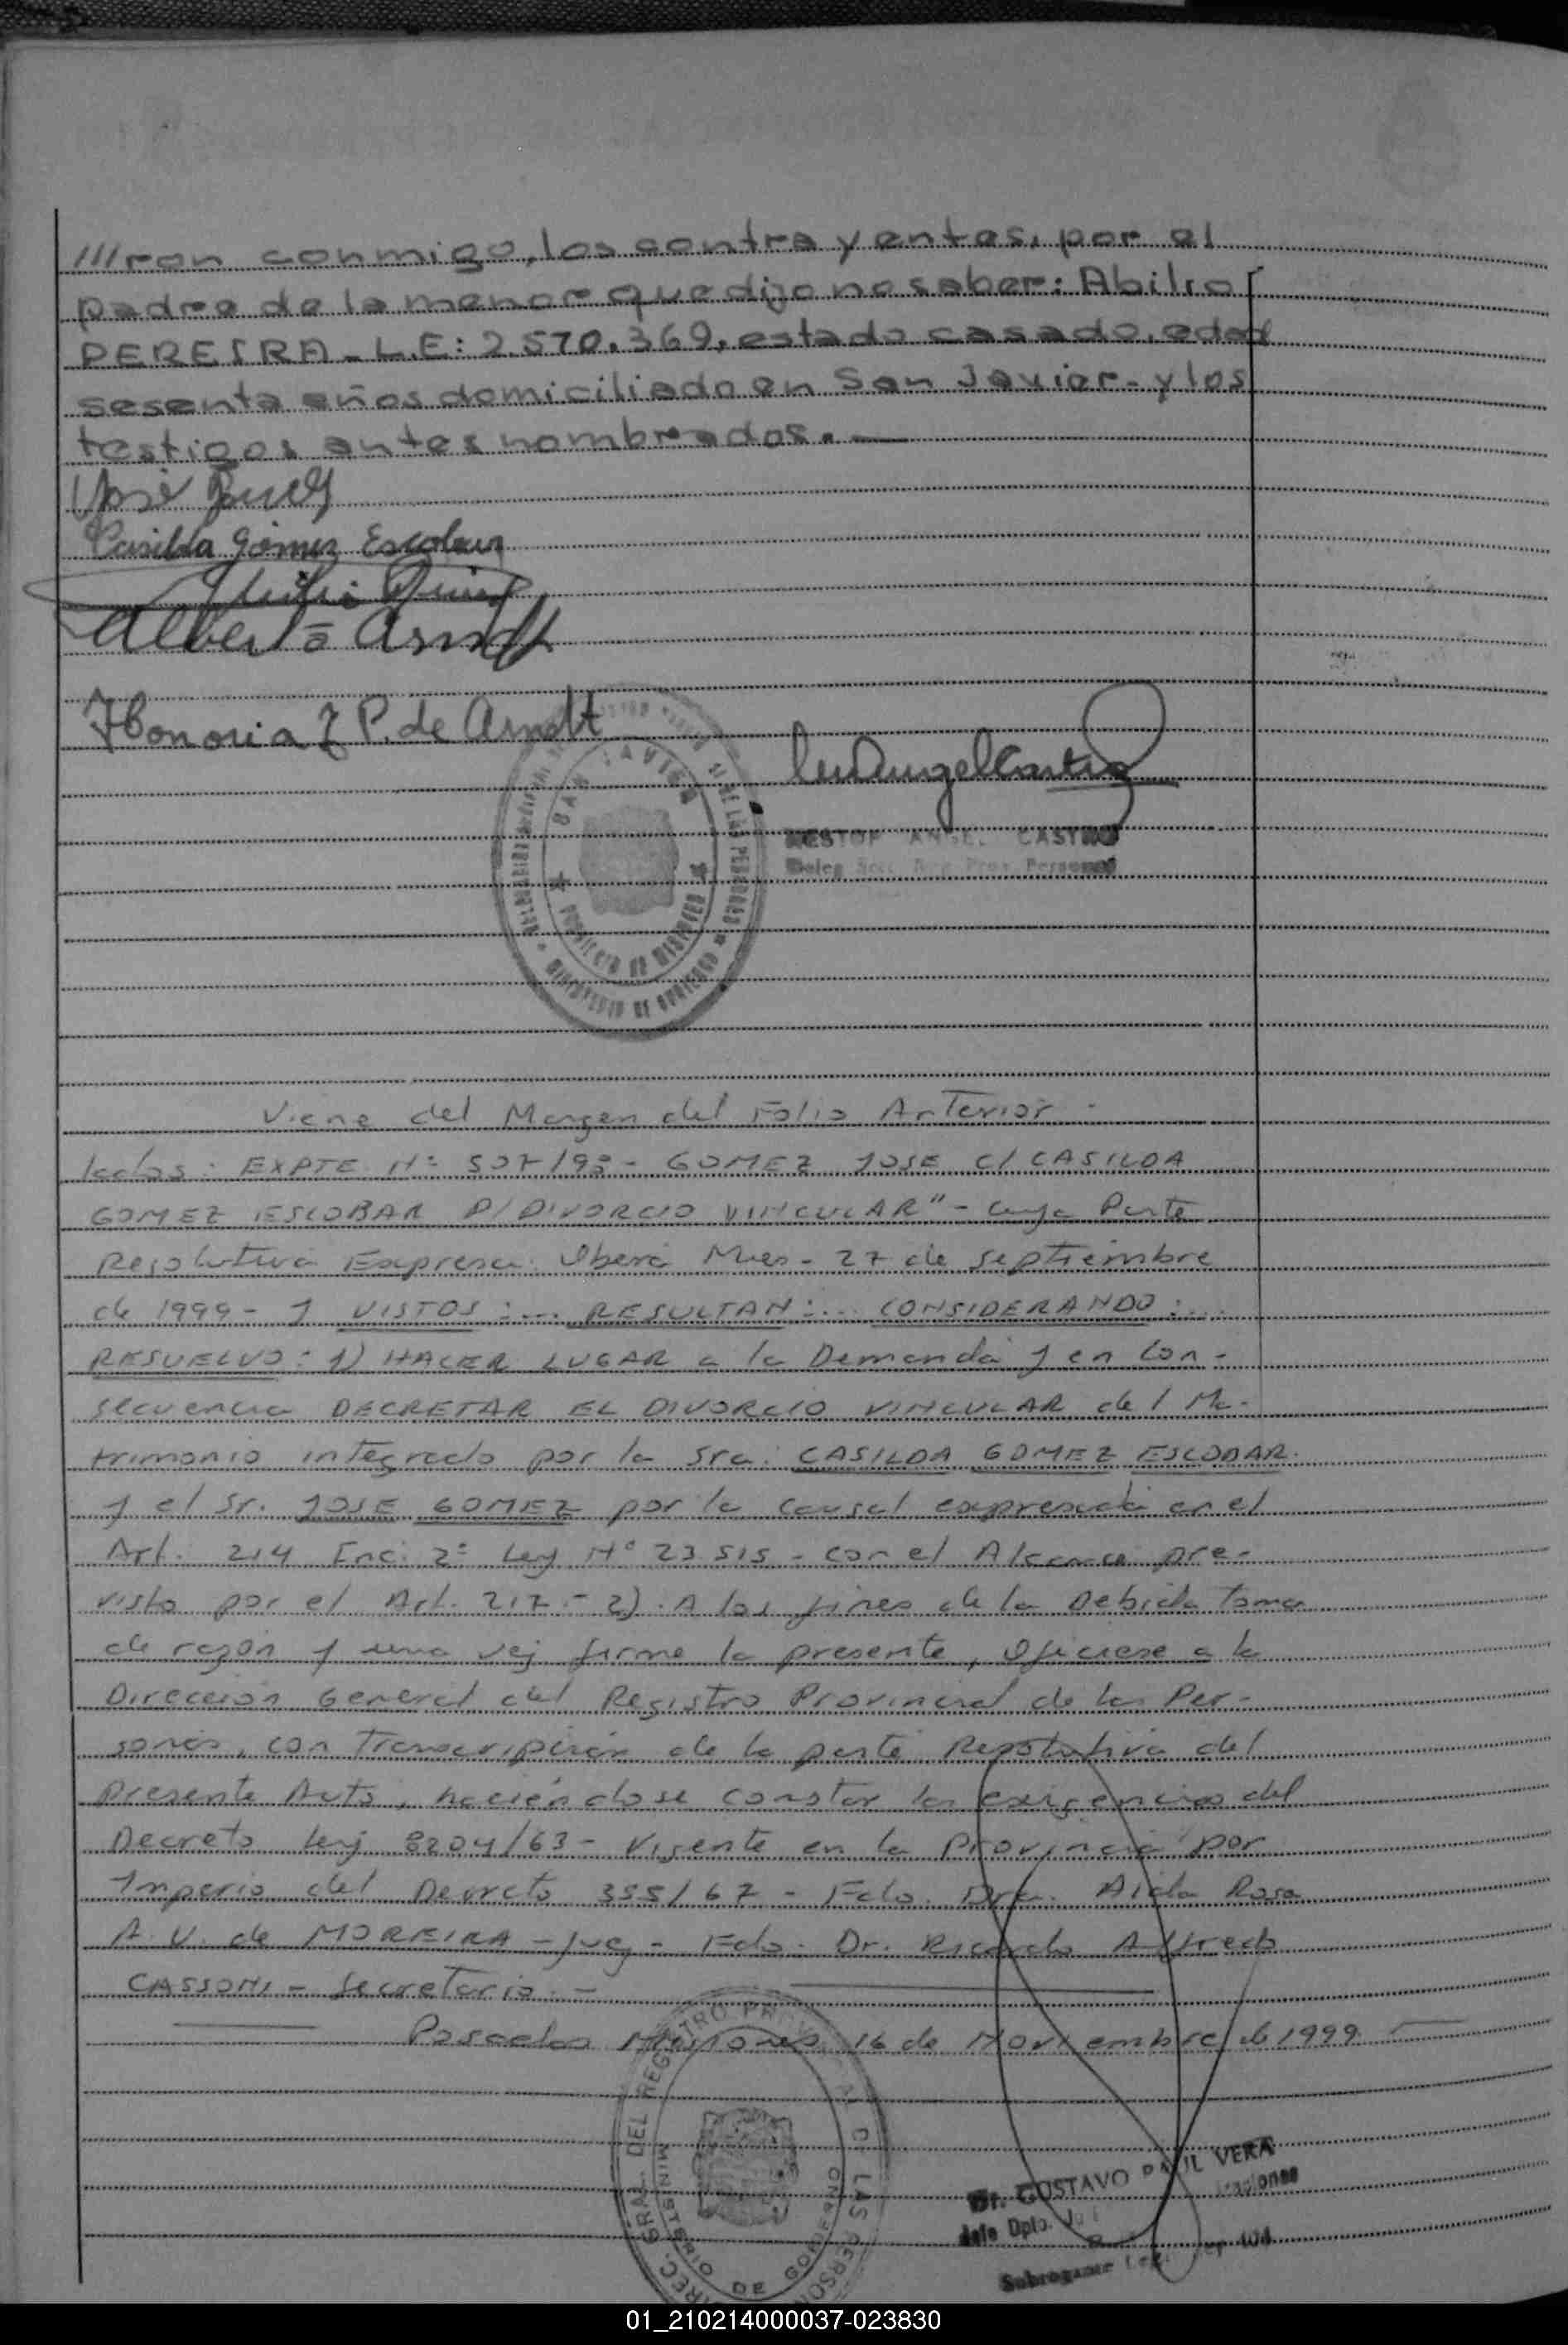 ///ron conmigo, los contrayentes, por el
padre de la menor que dijo no saber: Abilio
PEREIRA - L.E: 2.570.369, estado casado, edad
sesenta años domiciliado en San Javier - y los
testigos antes nombrados. —
José
Casilda Gómez Escobar
Alberto Arndt
Honoria Z P. de Arndt
SAN JAVIER
NESTOR ANGEL CASTRO
Viene del Margen del Folio Anterior -
lados: EXPTE Nº 507/98 - GOMEZ JOSE C/ CASILDA
GOMEZ ESCOBAR P/ DIVORCIO VINCULAR" - Cuya Parte
Resolutiva Expresa: Oberá Mnes - 27 de septiembre
de 1999 - Y VISTOS:... RESULTAN:... CONSIDERANDO:...
RESUELVO: 1) HACER LUGAR a la Demanda y en Con-
secuencia DECRETAR EL DIVORCIO VINCULAR del Ma-
trimonio integrado por la Sra: CASILDA GOMEZ ESCOBAR.
y el Sr. JOSE GOMEZ por la causal expresada en el
Art. 214 Inc. 2º Ley Nº 23.515 - con el Alcance pre-
visto por el Art. 217. - 2). A los fines de la Debida toma
de razón y una vez firme la presente, Ofíciese a la
Dirección General del Registro Provincial de las Per-
sonas, con Transcripción de la parte Resolutiva del
presente Auto, haciéndose constar las exigencias del
Decreto Ley 8204/63 - Vigente en la Provincia por
Imperio del Decreto 355/67 - Fdo. Dra. Aida Rosa
A. V. de MOREIRA - Juez - Fdo. Dr. Ricardo Alfredo
CASSONI - Secretario. -
Posadas Misiones, 16 de Noviembre de 1999.
Dr. GUSTAVO RAUL VERA
Jefe Dpto.
Subrogante
01_210214000037-023830